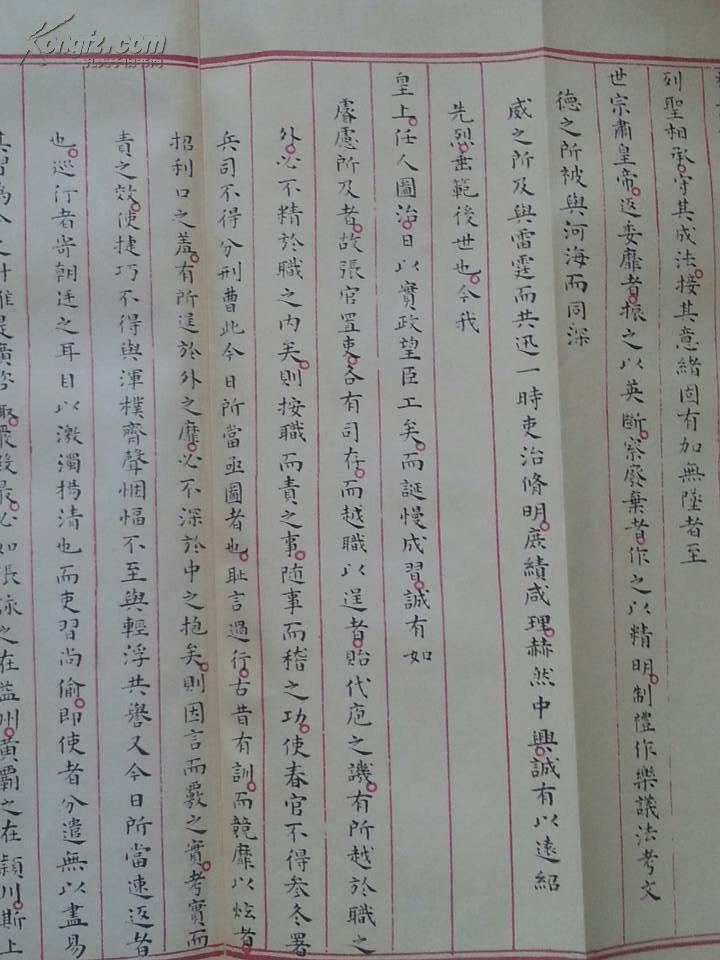 列聖相承守其成法接其意緒固有加無墜者至
世宗肅皇帝返委靡者振之以英斷察廢棄者作之以精明制禮作樂議法考文
德之所被與河海而同深
威之所及與雷霆而共迅一時吏治脩明庶績咸理赫然中興誠有以遠紹
先烈垂範後世也今我
皇上任人圖治日以實政望臣工矣而誕慢成習誠有如
睿慮所及者故張官置吏各有司存而越職以逞者貽代庖之譏有所越於職之
外必不精於職之內矣則按職而責之事隨事而稽之功使春官不得參冬署
兵司不得分刑曹此今日所當亟圖者也恥言過行古昔有訓而競靡以炫者
招利口之羞有所逞於外之靡必不深於中之抱矣則因言而覈之實考實而
責之效使捷巧不得與渾樸齊聲悃愊不至與輕浮共譽又今日所當速返者
也巡行者寄朝廷之耳目以激濁揚清也而吏習尚偷即使者分遣無以盡易
其習為今之計惟是廣咨諏嚴殿最必如張詠之在益州黃霸之在潁川斯上
Kongfz.com
孔夫子旧书网